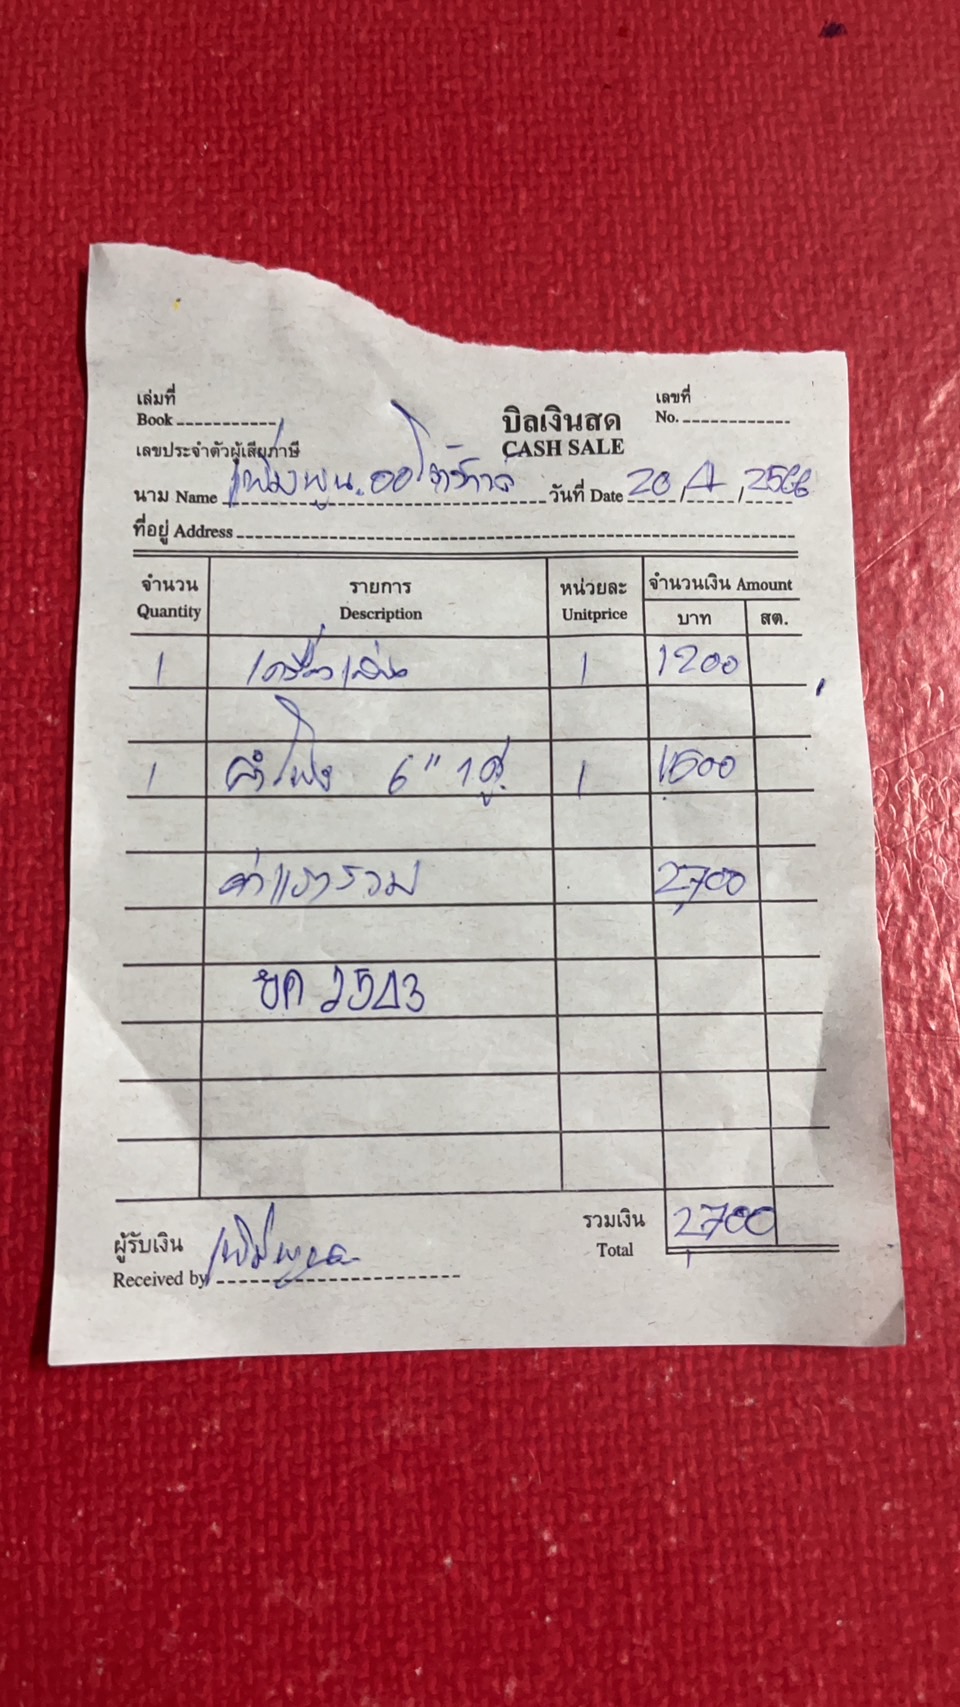 เล่มที่ เลขที่
Book บิลเงินสด No.
เลขประจำตัวผู้เสียภาษี CASH SALE
นาม Name เพิ่มพูน ออโต้คาร์ วันที่ Date 20 / 4 / 2566
ที่อยู่ Address
จำนวน รายการ หน่วยละ จำนวนเงิน Amount
Quantity Description Unitprice บาท สต.
1 เครื่องเสียง 1 1200
1 ลำโพง 6" 1 คู่ 1 1500
ค่าแรงรวม 2,700
2543
รวมเงิน 2,700
ผู้รับเงิน Total
Received by เพิ่มพูน